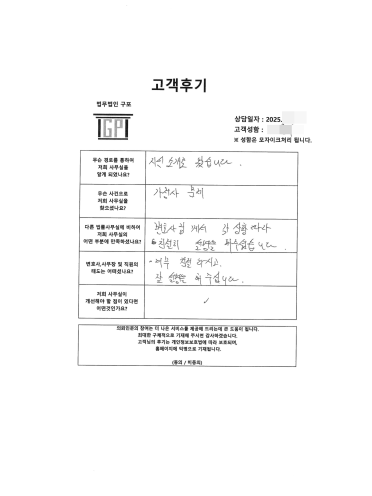 고객후기
법무법인 구포
GP
상담일자 : 2025.
고객성함 :
※ 성함은 모자이크처리 됩니다.
무슨 경로를 통하여
저희 사무실을
알게 되었나요?
지인 소개로 왔습니다.
무슨 사건으로
저희 사무실을
찾으셨나요?
가정사 문제
다른 법률사무실에 비하여
저희 사무실의
어떤 부분에 만족하셨나요?
변호사님 께서 각 상황 마다
친절히 설명을 해주셨습니다.
변호사,사무장 및 직원의
태도는 어떠셨나요?
- 너무 친절 하시고
잘 설명을 해 주십니다.
저희 사무실이
개선해야 할 점이 있다면
어떤것인가요?
✓
의뢰인분의 참여는 더 나은 서비스를 제공해 드리는데 큰 도움이 됩니다.
최대한 구체적으로 기재해 주시면 감사하겠습니다.
고객님의 후기는 개인정보보호법에 따라 보호되며,
홈페이지에 익명으로 기재됩니다.
(동의 / 미동의)